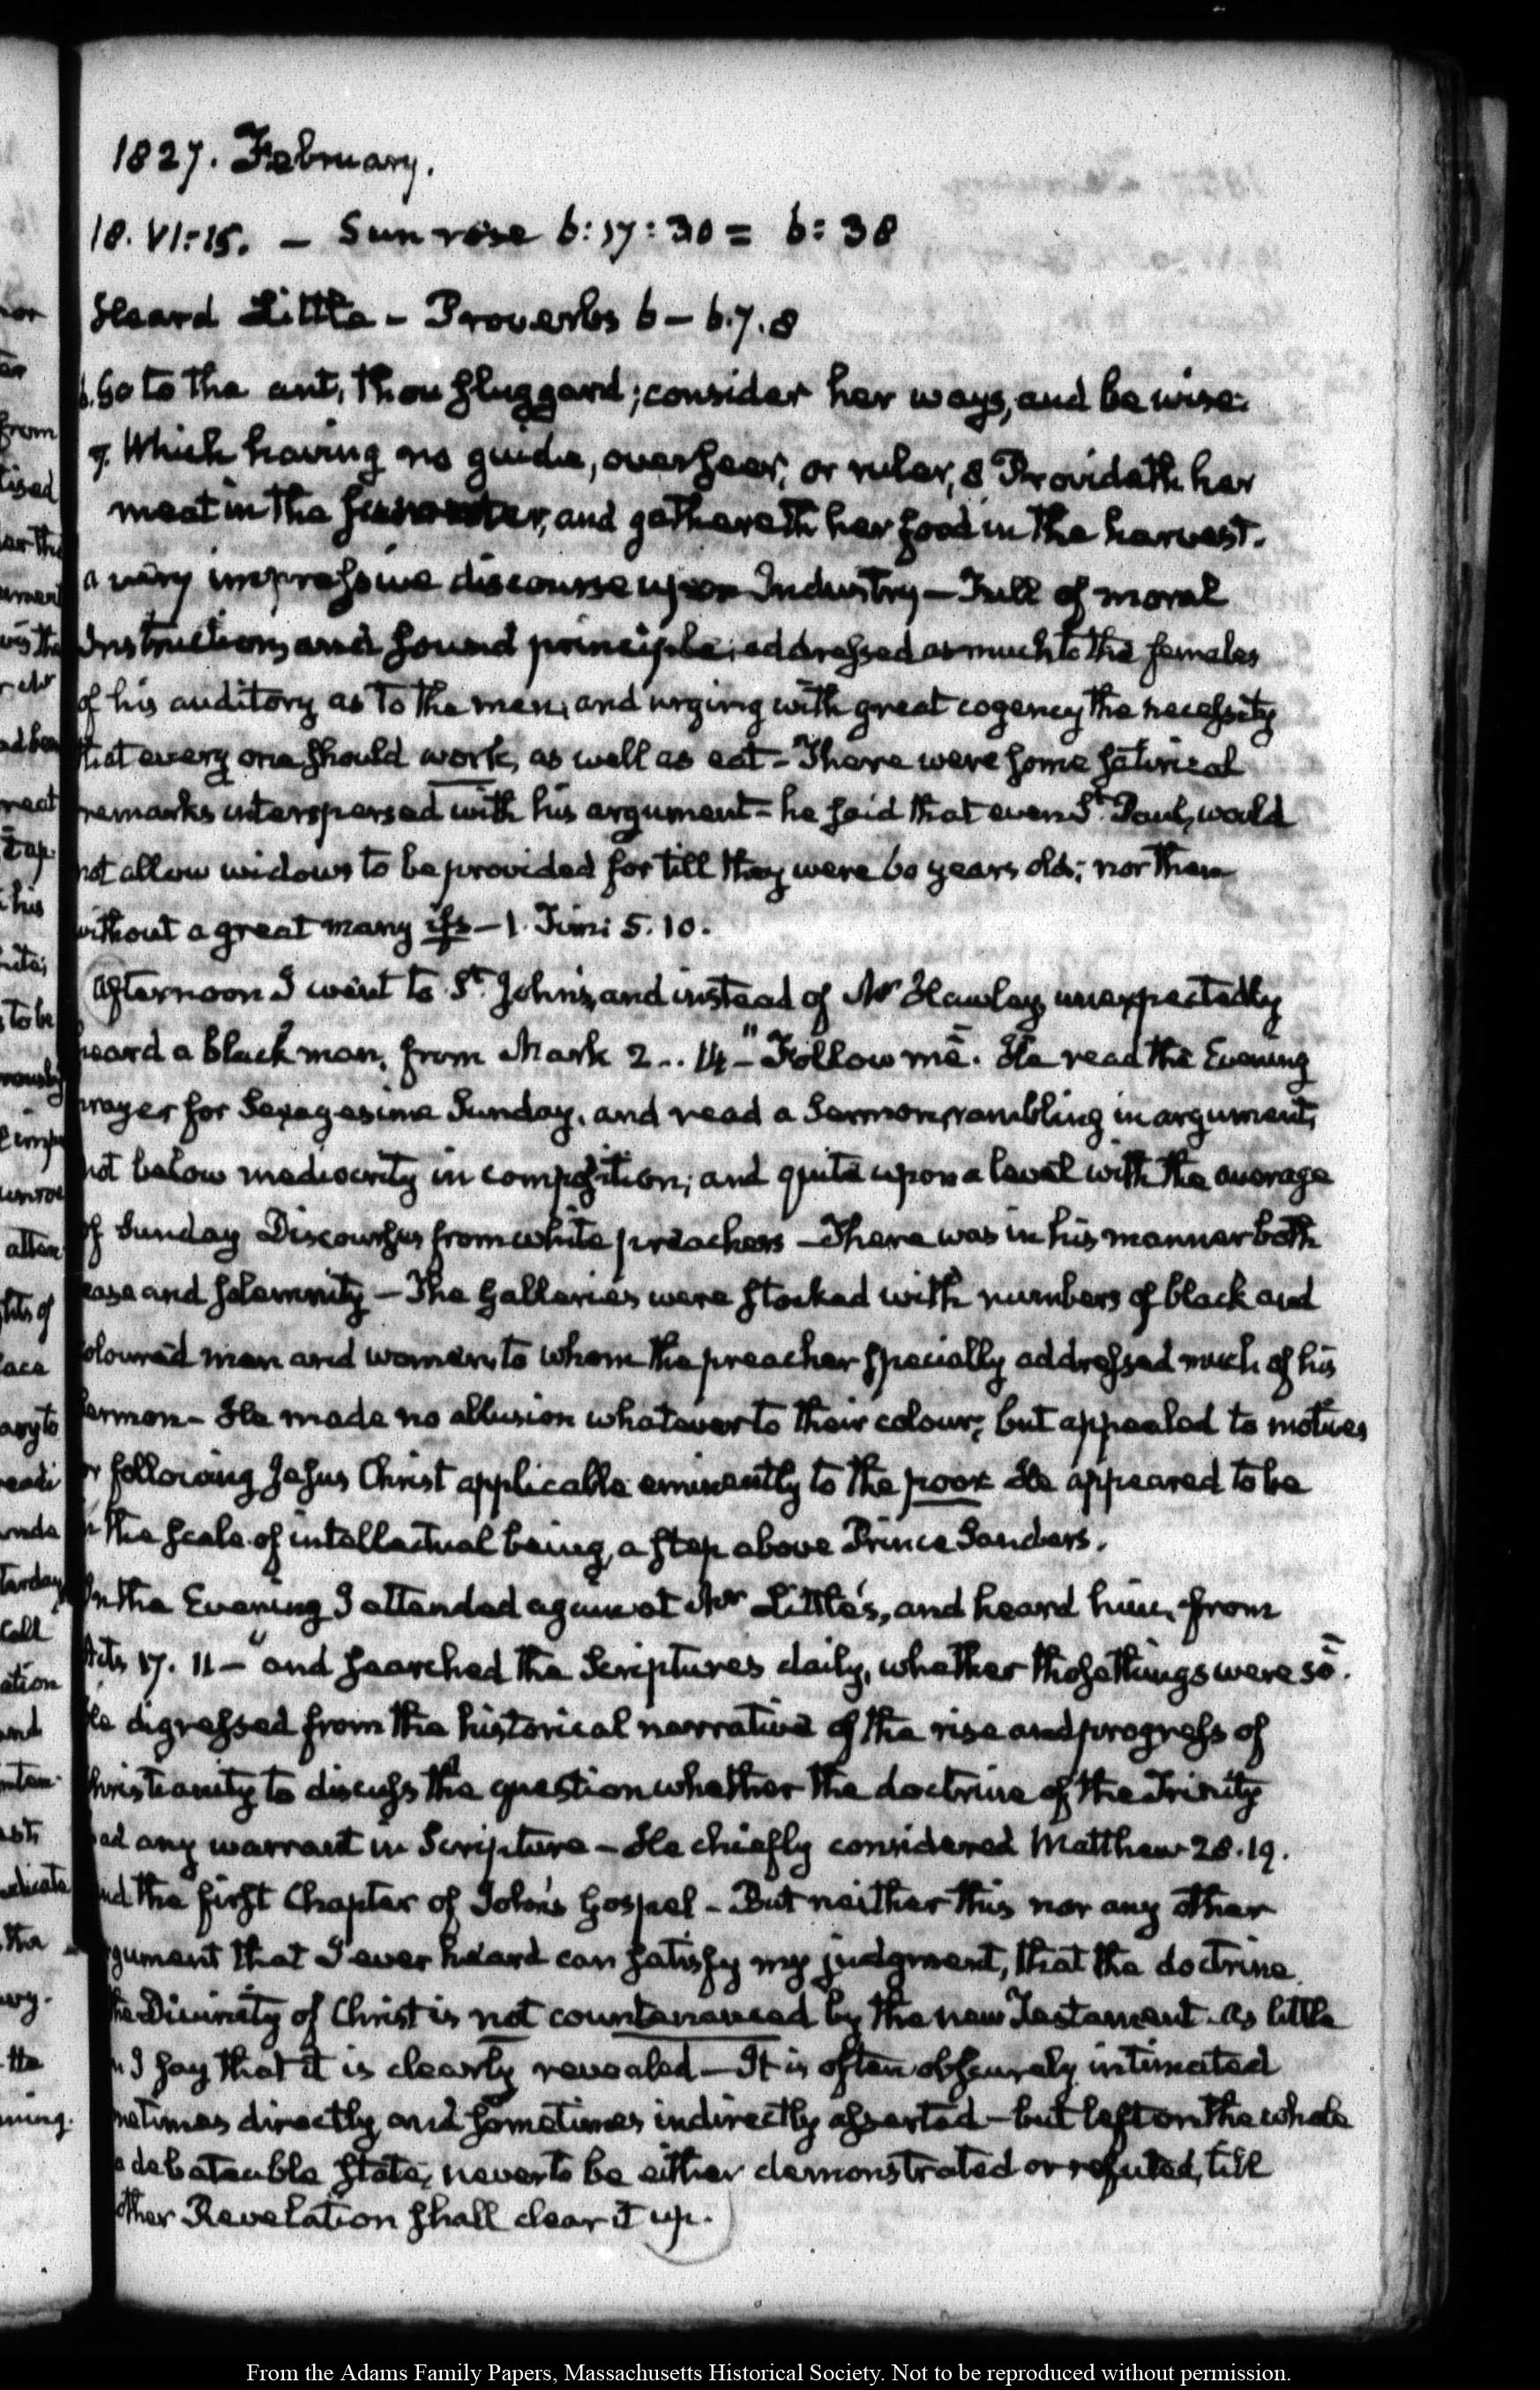 1827. February.
18. VI:15. – Sun rose 6:17:30 = 6:38
Heard Little – Proverbs 6 – 6.7.8
6. Go to the ant, thou sluggard; consider her ways, and be wise:
7. Which having no guide, overseer, or ruler, 8 Provideth her
meat in the summer, and gathereth her food in the harvest.
a very impressive discourse upon Industry – Full of moral
Instruction, and sound principle; addressed as much to the females
of his auditory as to the men, and urging with great cogency the necessity
that every one should work, as well as eat – There were some satirical
remarks interspersed with his argument – he said that even St. Paul, would
not allow widows to be provided for till they were 60 years old; nor then
without a great many ifs – 1. Tim: 5. 10.
Afternoon I went to St. John's, and instead of Mr Hawley, unexpectedly
heard a black man, from Mark 2 .. 14 – "Follow me". He read the Evening
prayer for Sexagesima Sunday, and read a Sermon, rambling in argument,
not below mediocrity in composition; and quite upon a level with the average
of Sunday Discourses from white preachers – There was in his manner both
ease and solemnity – The Galleries were stocked with numbers of black and
coloured men and women, to whom the preacher specially addressed much of his
sermon – He made no allusion whatever to their colour; but appealed to motives
for following Jesus Christ applicable eminently to the poor. He appeared to be
in the scale of intellectual being, a step above Prince Sanders.
In the Evening I attended again at Mr Little's, and heard him, from
Acts 17. 11 – "and searched the Scriptures daily, whether those things were so".
He digressed from the historical narrative of the rise and progress of
Christianity to discuss the question whether the doctrine of the Trinity
had any warrant in Scripture – He chiefly considered Matthew 28.19.
and the first Chapter of John's Gospel – But neither this nor any other
argument that I ever heard can satisfy my judgment, that the doctrine
the Divinity of Christ is not countenanced by the new Testament. As little
can I say that it is clearly revealed – It is often obscurely intimated
sometimes directly, and sometimes indirectly asserted – but left on the whole
a debateable state, never to be either demonstrated or refuted, till
other Revelation shall clear it up.
From the Adams Family Papers, Massachusetts Historical Society. Not to be reproduced without permission.